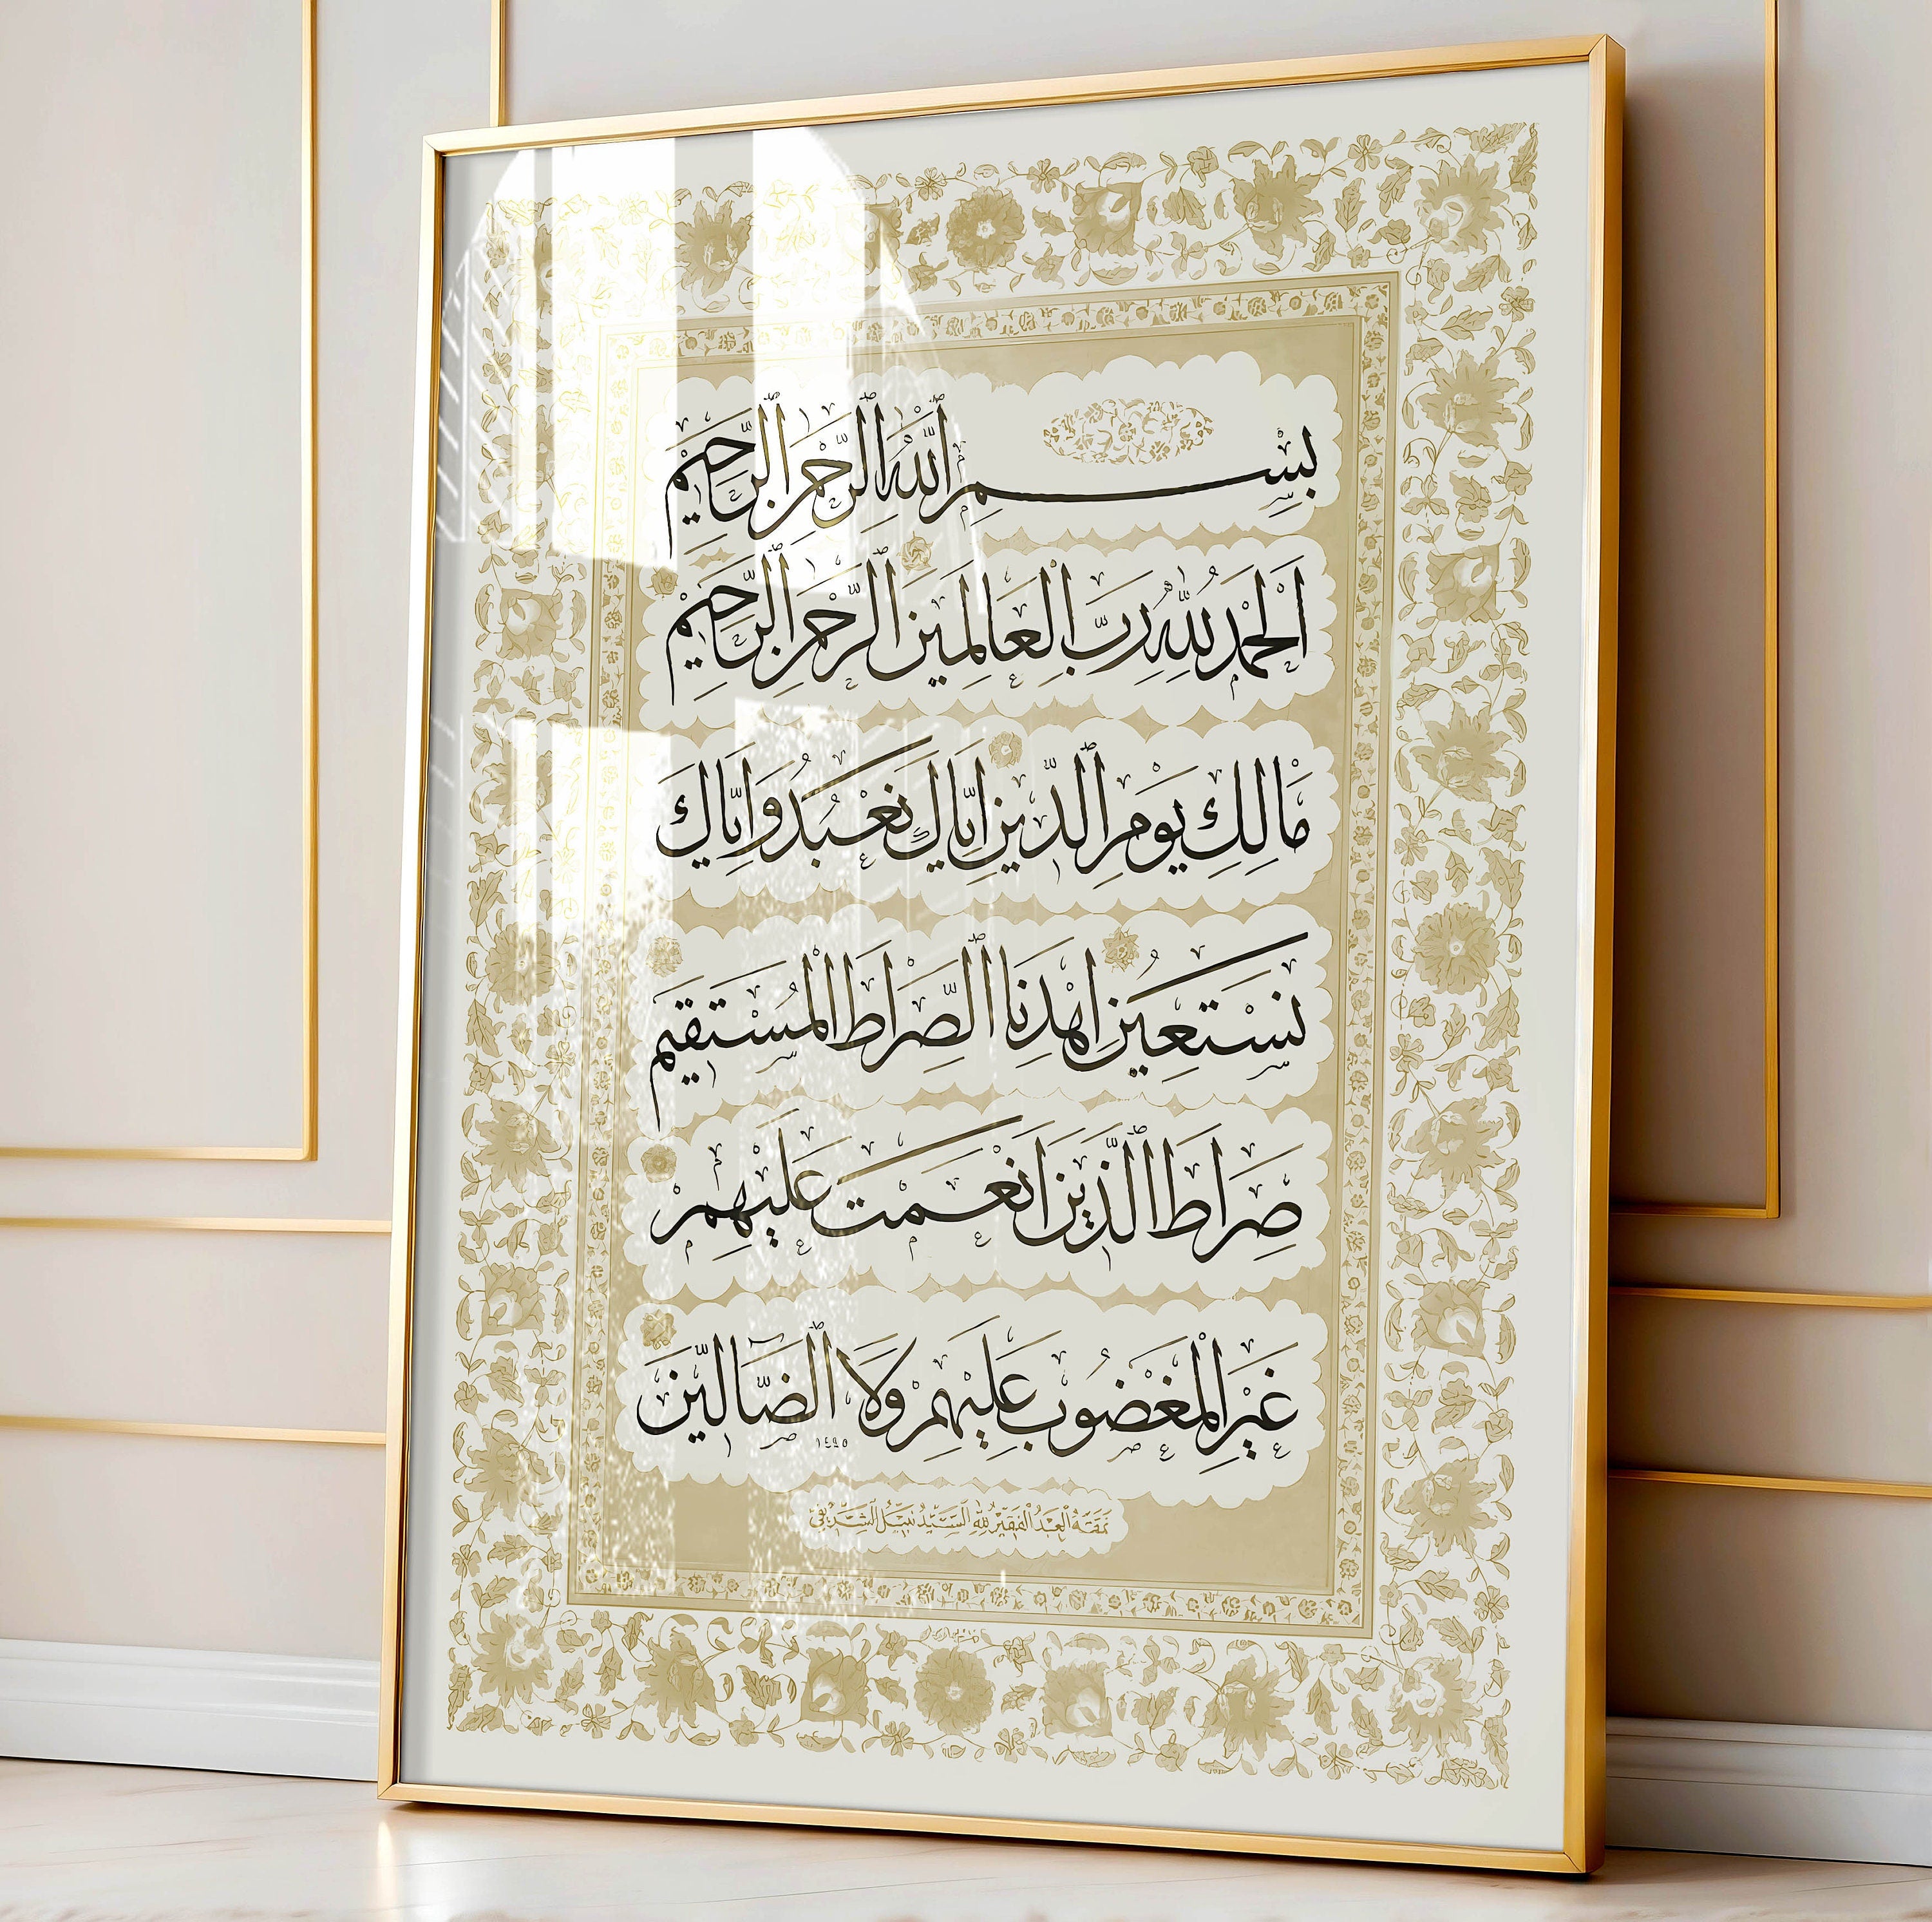 بِسْمِ اللَّهِ الرَّحْمٰنِ الرَّحِيمِ
اَلْحَمْدُ لِلّٰهِ رَبِّ الْعَالَمِينَ الرَّحْمٰنِ الرَّحِيمِ
مَالِكِ يَوْمِ الدِّينِ اِيَّاكَ نَعْبُدُ وَاِيَّاكَ
نَسْتَعِينُ اِهْدِنَا الصِّرَاطَ الْمُسْتَقِيمَ
صِرَاطَ الَّذِينَ اَنْعَمْتَ عَلَيْهِمْ
غَيْرِ الْمَغْضُوبِ عَلَيْهِمْ وَلَا الضَّالِّينَ
١٤٤٥
نَمَقَهُ الْعَبْدُ الْفَقِيرُ لِلّٰهِ السَّيِّدُ نَبِيلُ الشَّرِيفِي